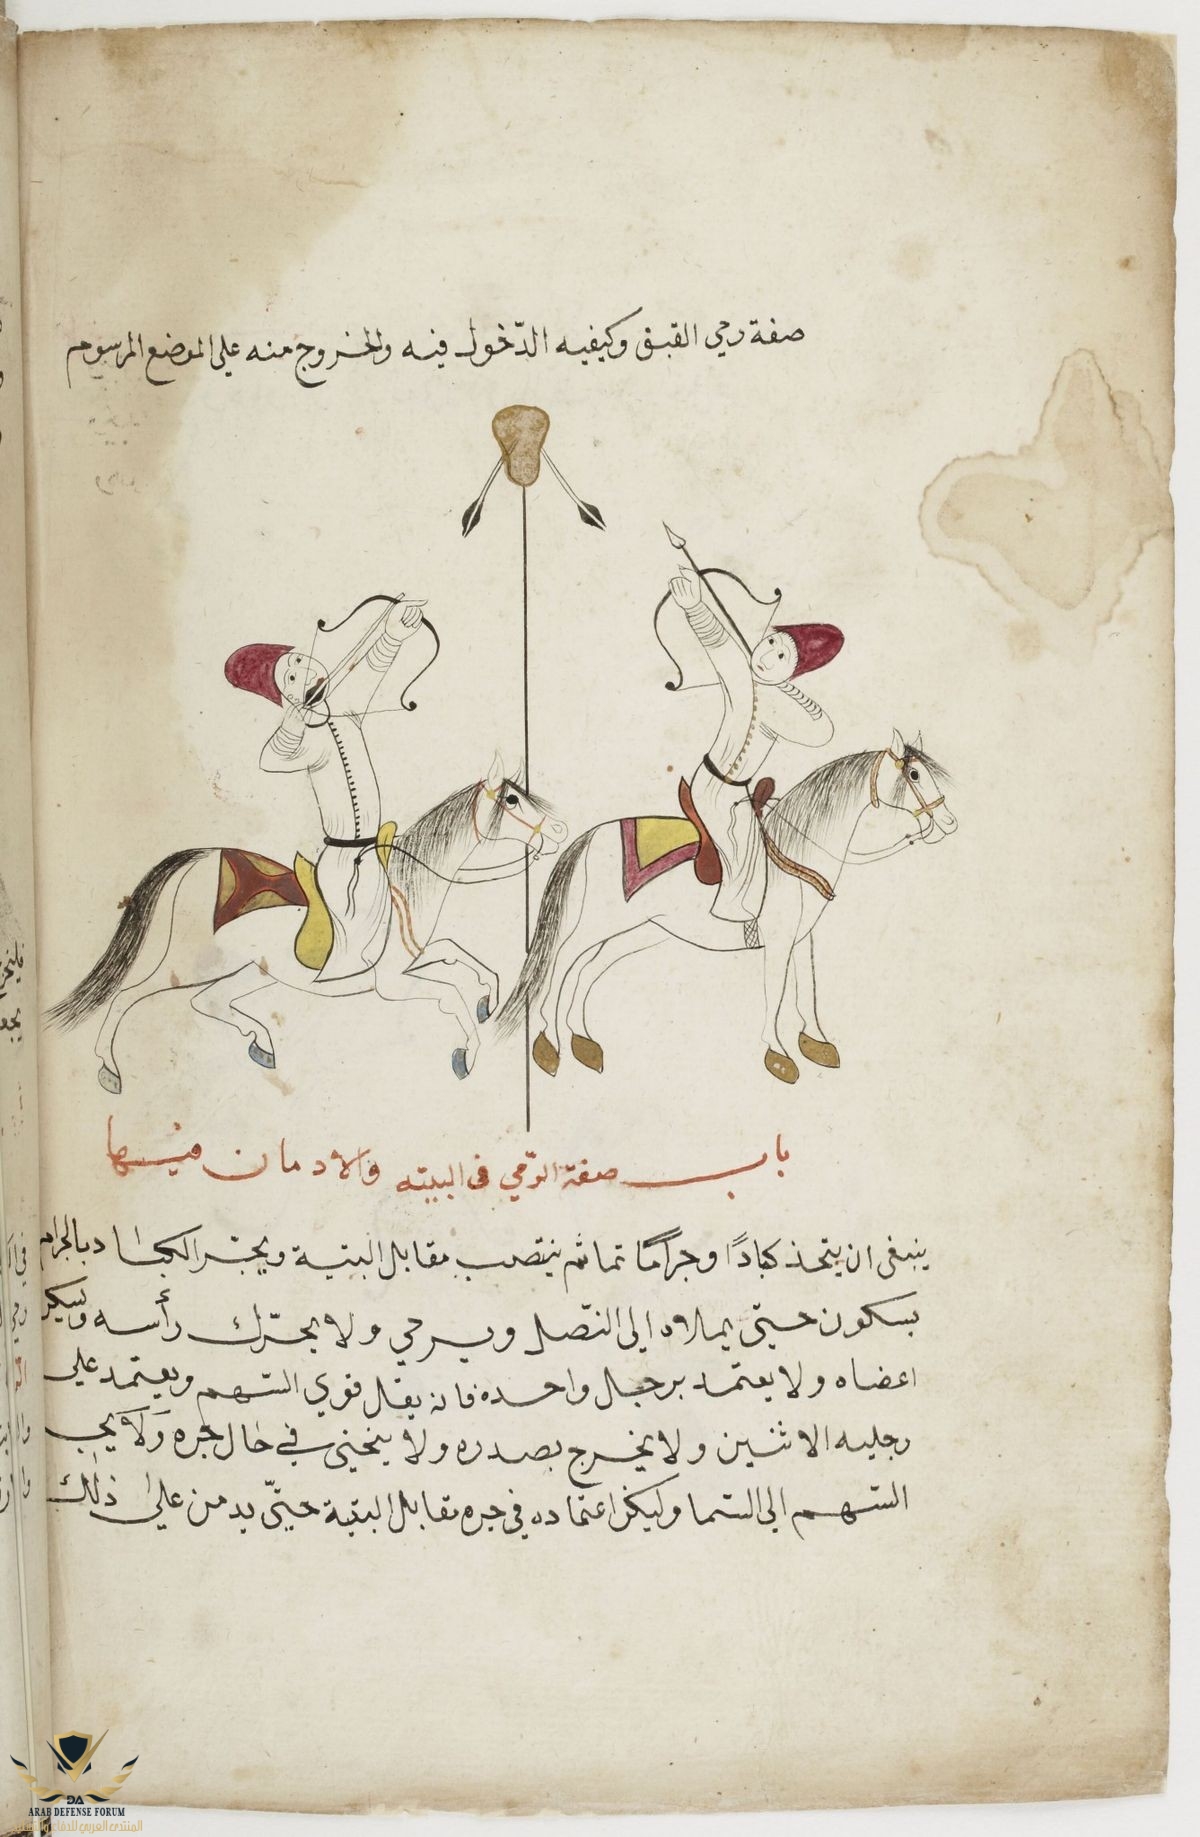 صفة رمي القبق وكيفيه الدّخول فيه والخروج منه على الموضع المرسوم
باب صفة الرّمي في البيته والادمان فيها
ينبغي ان يتخذ كبادًا وجرامًا تماثم ينتصب مقابل البتية ويجتر الكباد بالجرام
بسكون حتى يملاه الى النّصل ويرمي ولا يحرّك رأسه وسكن
اعضاه ولا يعتمد برجل واحده فانه يقل قوي السّهم ويعتمد على
رجليه الاثنين ولا يخرج بصدره ولا ينحني في حال جره ولا يجب
السّهم الى السّما وليكن اعتماده في جره مقابل البتية حتّى يدمن على ذلك
ARAB DEFENSE FORUM